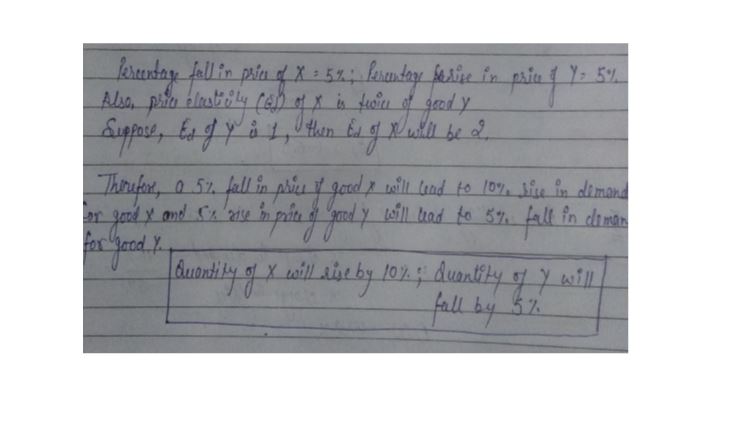 Percentage fall in price of X = 5%; Percentage rise in price of Y = 5%.
Also, price elasticity (Ed) of X is twice of good Y
Suppose, Ed of Y is 1, then Ed of X will be 2.
Therefore, a 5% fall in price of good X will lead to 10% rise in demand
for good X and 5% rise in price of good Y will lead to 5% fall in deman
for good Y.
Quantity of X will rise by 10%; Quantity of Y will
fall by 5%